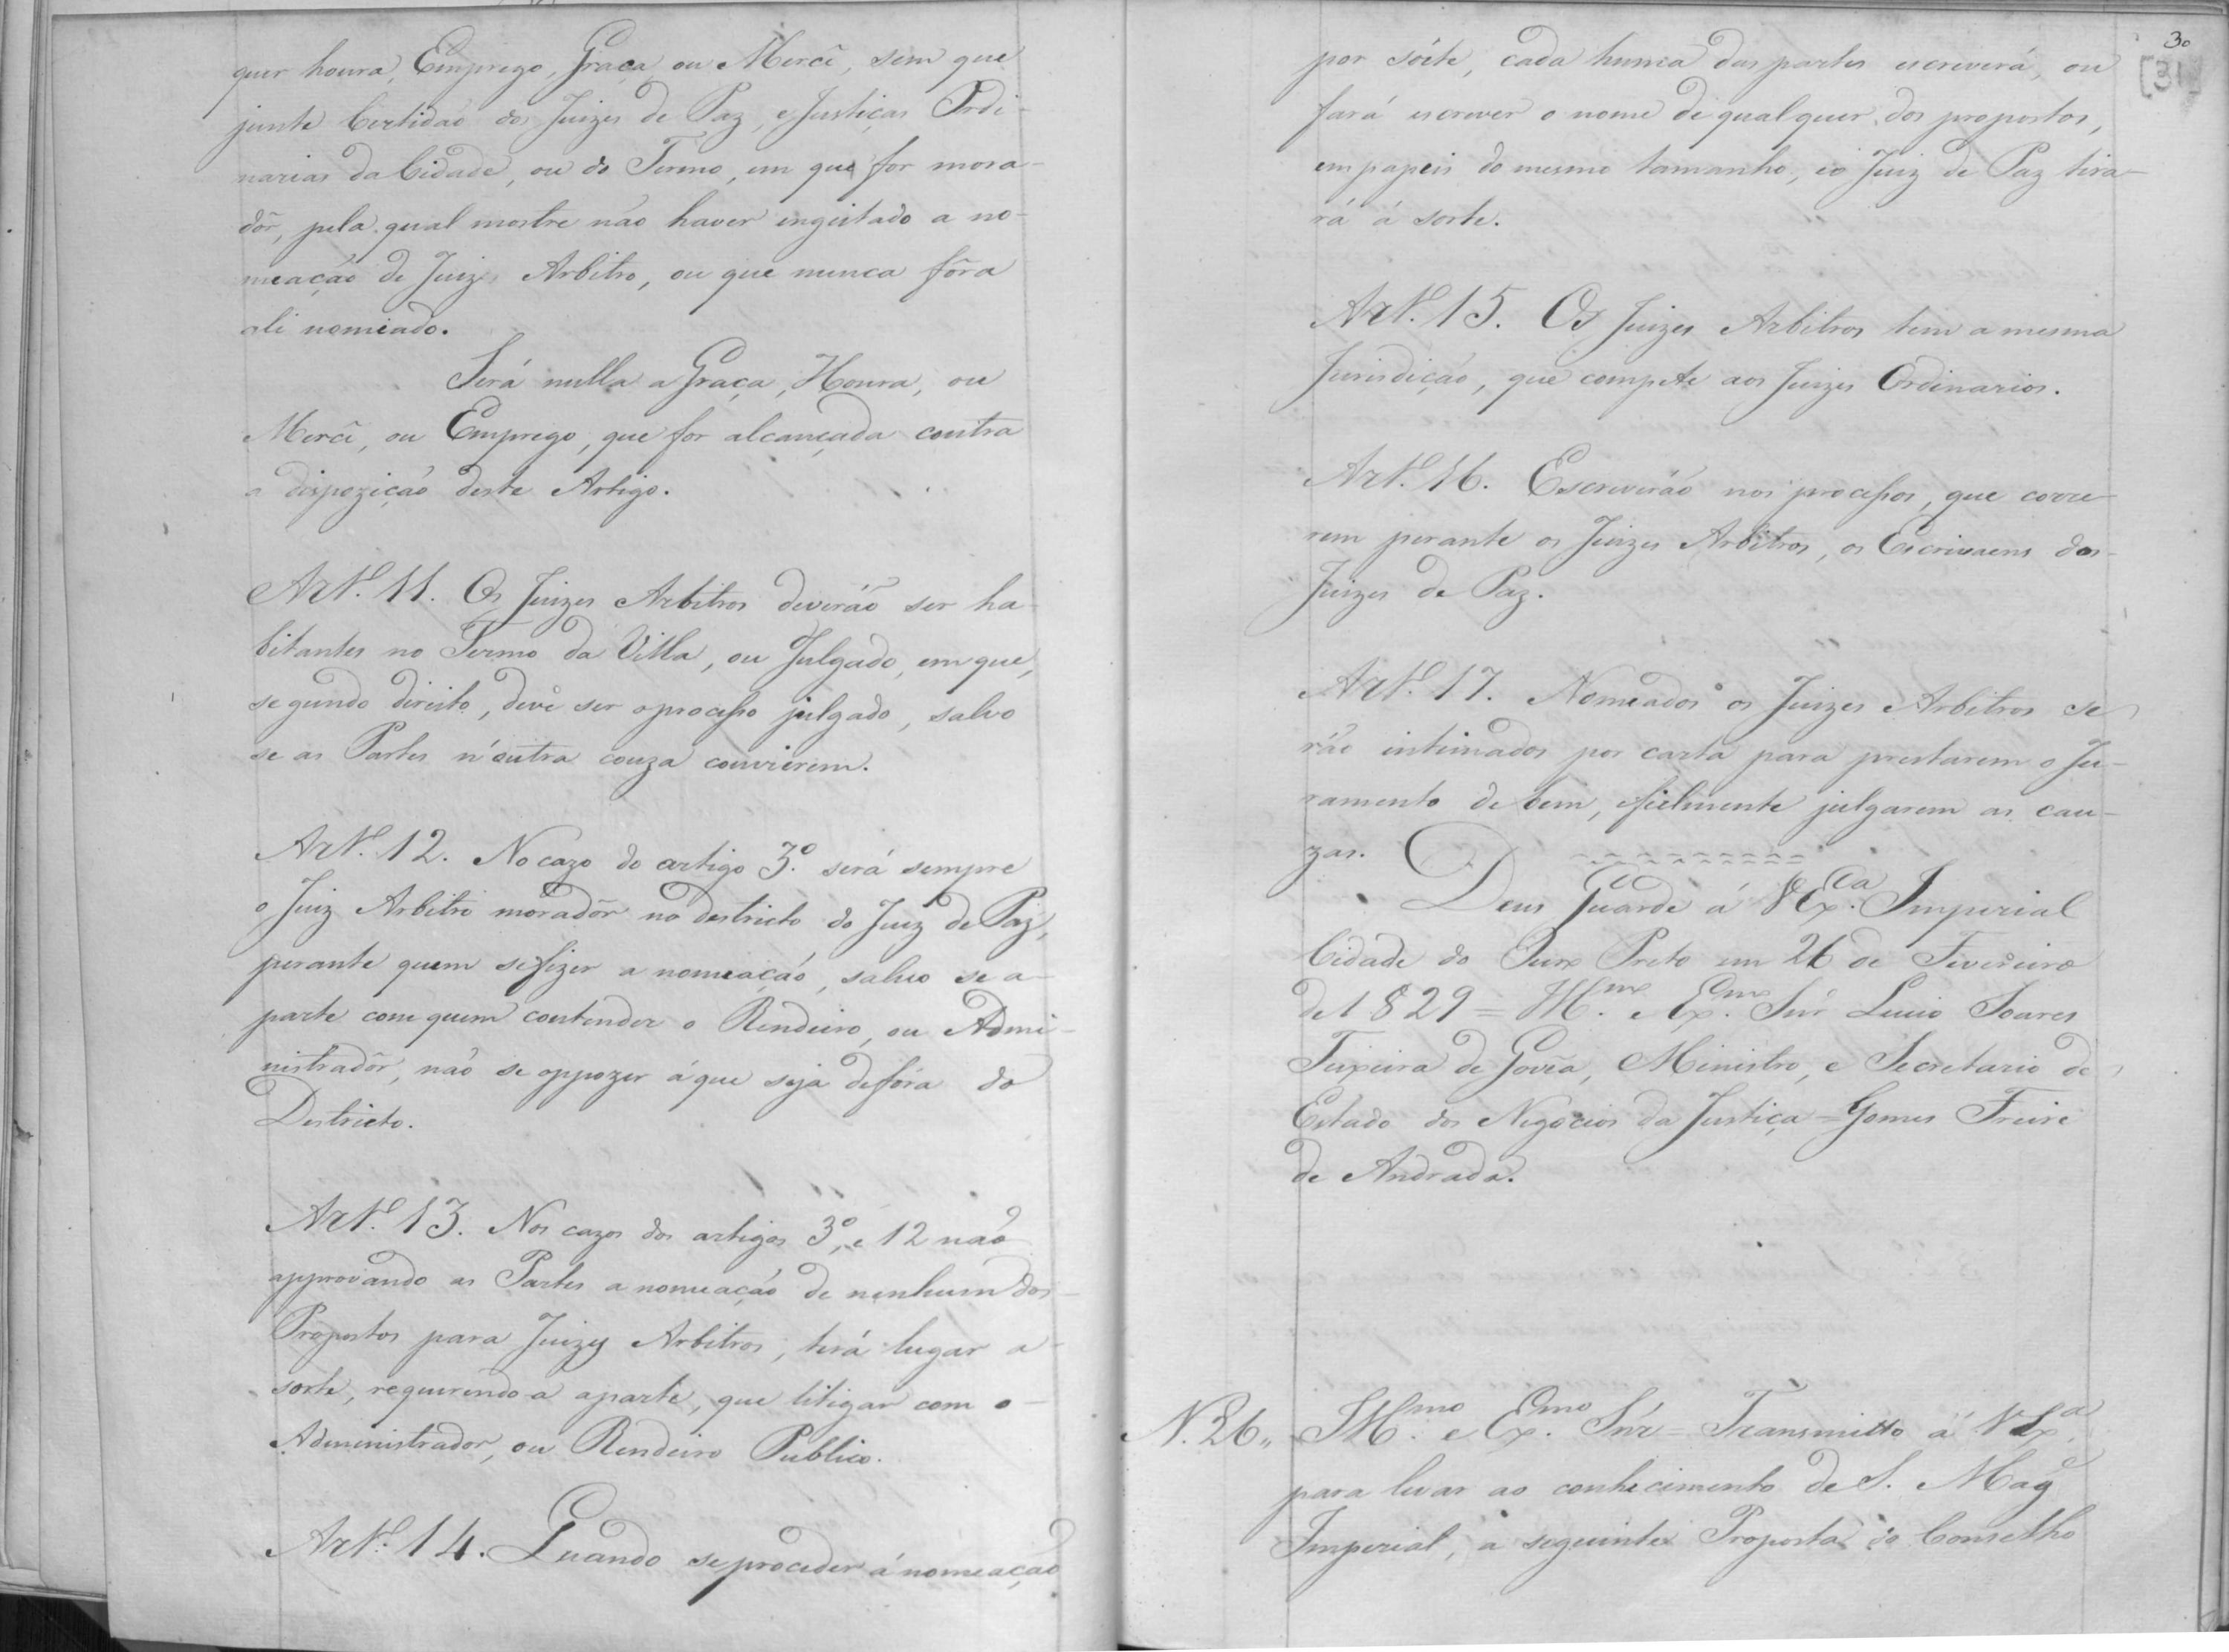 quer honra, Emprego, Graça, ou Mercê, sem que
junte Certidaõ dos Juizes de Paz, e Justiças Ordi-
narias da Cidade, ou do Termo, em que for mora-
dôr, pela qual mostre não haver engeitado a no-
meação de Juiz Arbitro, ou que nunca fôra
ali nomeado.
Será nulla a Graça, Honra, ou
Mercê, ou Emprego, que for alcançada contra
a dispozição deste Artigo.
Artº. 11. Os Juizes Arbitros deverão ser ha-
bitantes no Termo da Villa, ou Julgado, em que,
segundo direito, deve ser o processo julgado, salvo
se as Partes n'outra couza convierem.
Artº. 12. No cazo do artigo 3º. será sempre
o Juiz Arbitro moradôr no destricto do Juiz de Paz,
perante quem se fizer a nomeação, salvo se a-
parte com quem contender o Rendeiro, ou Admi-
nistradôr, não se oppozer á que seja de fóra do
Destricto.
Artº. 13. Nos cazos dos artigos 3º, e 12 não
approvando as Partes a nomeação de nenhum dos-
Propostos para Juizes Arbitros, terá lugar a-
sorte, requerendo a a parte, que litigar com o-
Administrador, ou Rendeiro Publico.
Artº. 14. Quando se proceder á nomeação
30
[31]
por sórte, cada huma das partes escreverá, ou
fará escrever o nome de qualquer dos propostos,
em papeis do mesmo tamanho, e o Juiz de Paz tira-
rá á sorte.
Artº. 15. Os Juizes Arbitros tem a mesma
Jurisdição, que compete aos Juizes Ordinarios.
Artº. 16. Escreverão nos processos, que corre-
rem perante os Juizes Arbitros, os Escrivaens dos-
Juizes de Paz.
Artº. 17. Nomeados os Juizes Arbitros se
rão intimados por carta para prestarem o Ju-
ramento de bem, e fielmente julgarem as cau-
zas.
Deus Guarde á V Exª. Imperial
Cidade do Ouro Preto em 26 de Fevereiro
de 1829 = Illmo. Exmo. Snr Lucio Soares
Teixeira de Govêa, Ministro, e Secretario de
Estado dos Negocios da Justiça = Gomes Freire
de Andrada.
N. 26,, Illmo. e Exmo. Snr = Transmitto á V Exª.
para levar ao conhecimento de S. Mage
Imperial, a seguinte Proposta do Conselho